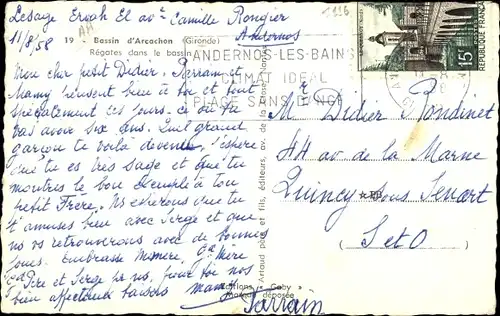 Lesage Ervah El av. Camille Rongier
11/8/58 Andernos
1116
AH
19 - Bassin d'Arcachon (Gironde)
Régates dans le bassin
ANDERNOS-LES-BAINS
CLIMAT IDEAL
PLAGE SANS DANGER
15F
Mon cher petit Didier. Parrain et
Mamy pensent bien à toi et tout
spécialement ces jours-ci où tu
vas avoir six ans. Quel grand
garçon te voilà devenu, j'espère
que tu es très sage et que tu
montres le bon exemple à ton
petit Frère. Ns espérons que tu
t'amuses bien avec Serge et que
ns ns retrouverons avec de bonnes
joues. Embrasse Mémère, Gd Mère
Gd Père et Serge pr ns, pour toi nos
bien affectueux baisers Mamy
Parrain
Artaud père et fils, éditeurs, av. de la Close, Nantes
Editions Gaby
Marque déposée
Mr Didier Rondinet
44 av de la Marne
Quincy-sous-Senart
(S et O)